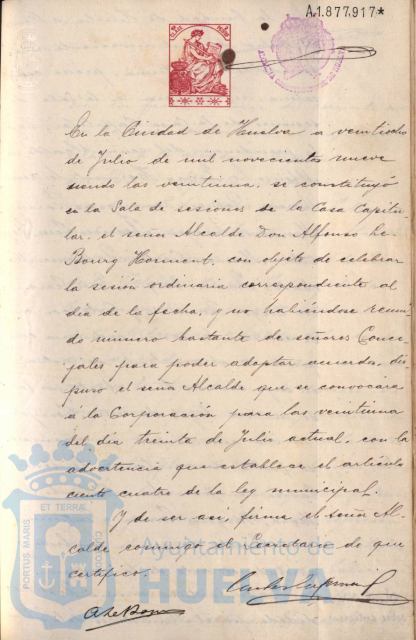 A.1.877.917*
En la Ciudad de Huelva a veintiocho
de Julio de mil novecientos nueve
siendo las veintiuna, se constituyó
en la Sala de sesiones de la Casa Capitu-
lar, el señor Alcalde Don Alfonso Le
Bourg Hormont, con objeto de celebrar
la sesión ordinaria correspondiente al
dia de la fecha, y no habiéndose reuni-
do número bastante de señores Conce-
jales para poder adoptar acuerdo, dis-
puso el señor Alcalde que se convocara
á la Corporación para las veintiuna
del dia treinta de Julio actual, con la
advertencia que establece el artículo
ciento cuatro de la ley municipal.
Y de ser asi, firma el señor Al-
calde conmigo el Secretario de que
certifico.
PORTUS MARIS
ET TERRÆ
Ayuntamiento de
HUELVA